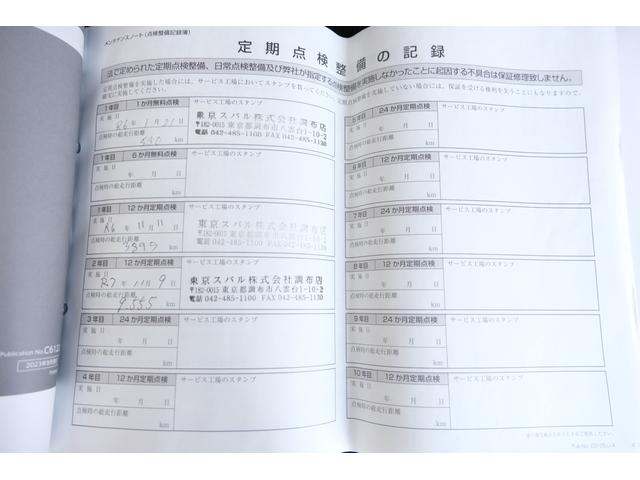 メンテナンスノート(点検整備記録簿)
定期点検整備の記録
法で定められた定期点検整備、日常点検整備及び弊社が指定する点検整備を実施しなかったことに起因する不具合は保証修理致しません。
定期点検整備を実施した場合には、サービス工場においてスタンプを貰ってください。定期点検整備を実施していない場合には、保証を受ける権利を失うことにもなりますので、
確実に実施してください。
1年目 1か月無料点検 サービス工場のスタンプ
実施日
R6年 1月21日
点検時の総走行距離
530 km
東京スバル株式会社調布店
〒182-0015 東京都調布市八雲台1-10-2
電話 042-485-1100 FAX 042-485-1130
1年目 6か月無料点検 サービス工場のスタンプ
実施日
年 月 日
点検時の総走行距離
km
1年目 12か月定期点検 サービス工場のスタンプ
実施日
R6 年 11月 11日
点検時の総走行距離
km
東京スバル株式会社調布店
〒182-0015 東京都調布市八雲台1-10-2
電話 042-485-1100 FAX 042-485-1130
2年目 12か月定期点検 サービス工場のスタンプ
実施日
R7 年 11月 9日
点検時の総走行距離
9555 km
東京スバル株式会社調布店
〒182-0015 東京都調布市八雲台1-10-2
電話 042-485-1100 FAX 042-485-1130
3年目 24か月定期点検 サービス工場のスタンプ
実施日
年 月 日
点検時の総走行距離
km
4年目 12か月定期点検 サービス工場のスタンプ
実施日
年 月 日
点検時の総走行距離
km
5年目 24か月定期点検 サービス工場のスタンプ
実施日
年 月 日
点検時の総走行距離
km
6年目 12か月定期点検 サービス工場のスタンプ
実施日
年 月 日
点検時の総走行距離
km
7年目 24か月定期点検 サービス工場のスタンプ
実施日
年 月 日
点検時の総走行距離
km
8年目 12か月定期点検 サービス工場のスタンプ
実施日
年 月 日
点検時の総走行距離
km
9年目 24か月定期点検 サービス工場のスタンプ
実施日
年 月 日
点検時の総走行距離
km
10年目 12か月定期点検 サービス工場のスタンプ
実施日
年 月 日
点検時の総走行距離
km
Publication No.